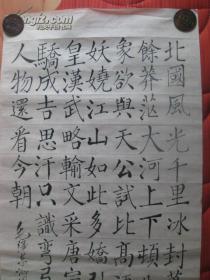 北國風光千里冰封
餘莽茫大河上下頓
象欲與天公試比高
妖嬈江山如此多嬌引
皇漢武略輸文采唐宗
驕成吉思汗只識彎弓
人物還看今朝